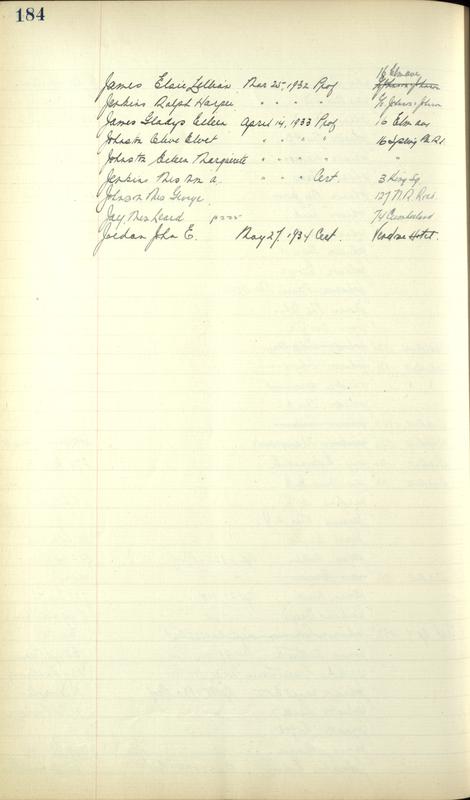 184
16 Elm ave
James Elsie Lillian Mar 25, 1932 Prof
Jenkins Ralph Harper " " " " St Johns &
James Gladys Eileen April 14, 1933 Prof 16 Elm ave
Johnston Clive Elvet " " " " 16 Spring Pk Rd
Johnston Eileen Marguerite " " " " "
Jenkins Mrs Wm a. " " " Cert. 3 King Sq
Johnson Mrs George. 127 N.R. Road.
Jay Mrs 74 Cumberland
Jordan John E. May 27, 1934 Cert. Hotel.